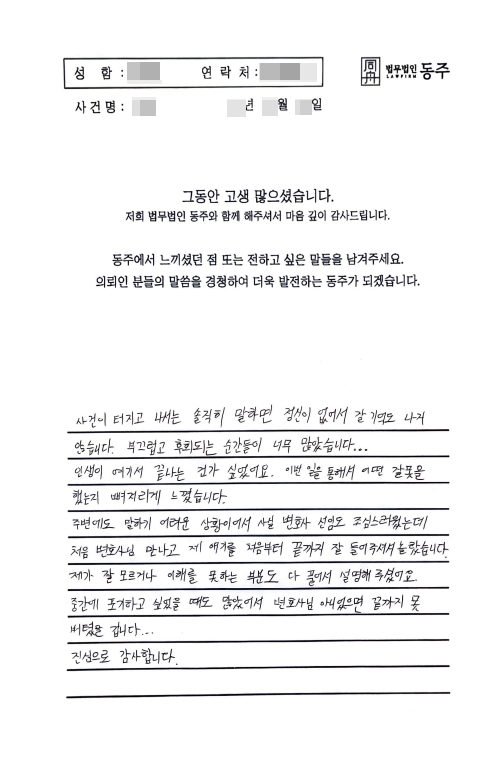 성 함 : 연 락 처 :
同舟 법무법인 동주
LAWFIRM
사 건 명 : 년 월 일
그동안 고생 많으셨습니다.
저희 법무법인 동주와 함께 해주셔서 마음 깊이 감사드립니다.
동주에서 느끼셨던 점 또는 전하고 싶은 말들을 남겨주세요.
의뢰인 분들의 말씀을 경청하여 더욱 발전하는 동주가 되겠습니다.
사건이 터지고 나서는 솔직히 말하면 정신이 없어서 잘 기억도 나지
않습니다. 부끄럽고 후회되는 순간들이 너무 많았습니다...
인생이 여기서 끝나는 건가 싶었어요. 이번 일을 통해서 어떤 잘못을
했는지 뼈저리게 느꼈습니다.
주변에도 말하기 어려운 상황이어서 사실 변호사 선임도 조심스러웠는데
처음 변호사님 만나고 제 얘기를 처음부터 끝까지 잘 들어주셔서 놀랐습니다.
제가 잘 모르거나 이해를 못하는 부분도 다 풀어서 설명해 주셨어요.
중간에 포기하고 싶었을 때도 많았어서 변호사님 아니었으면 끝까지 못
버텼을 겁니다...
진심으로 감사합니다.